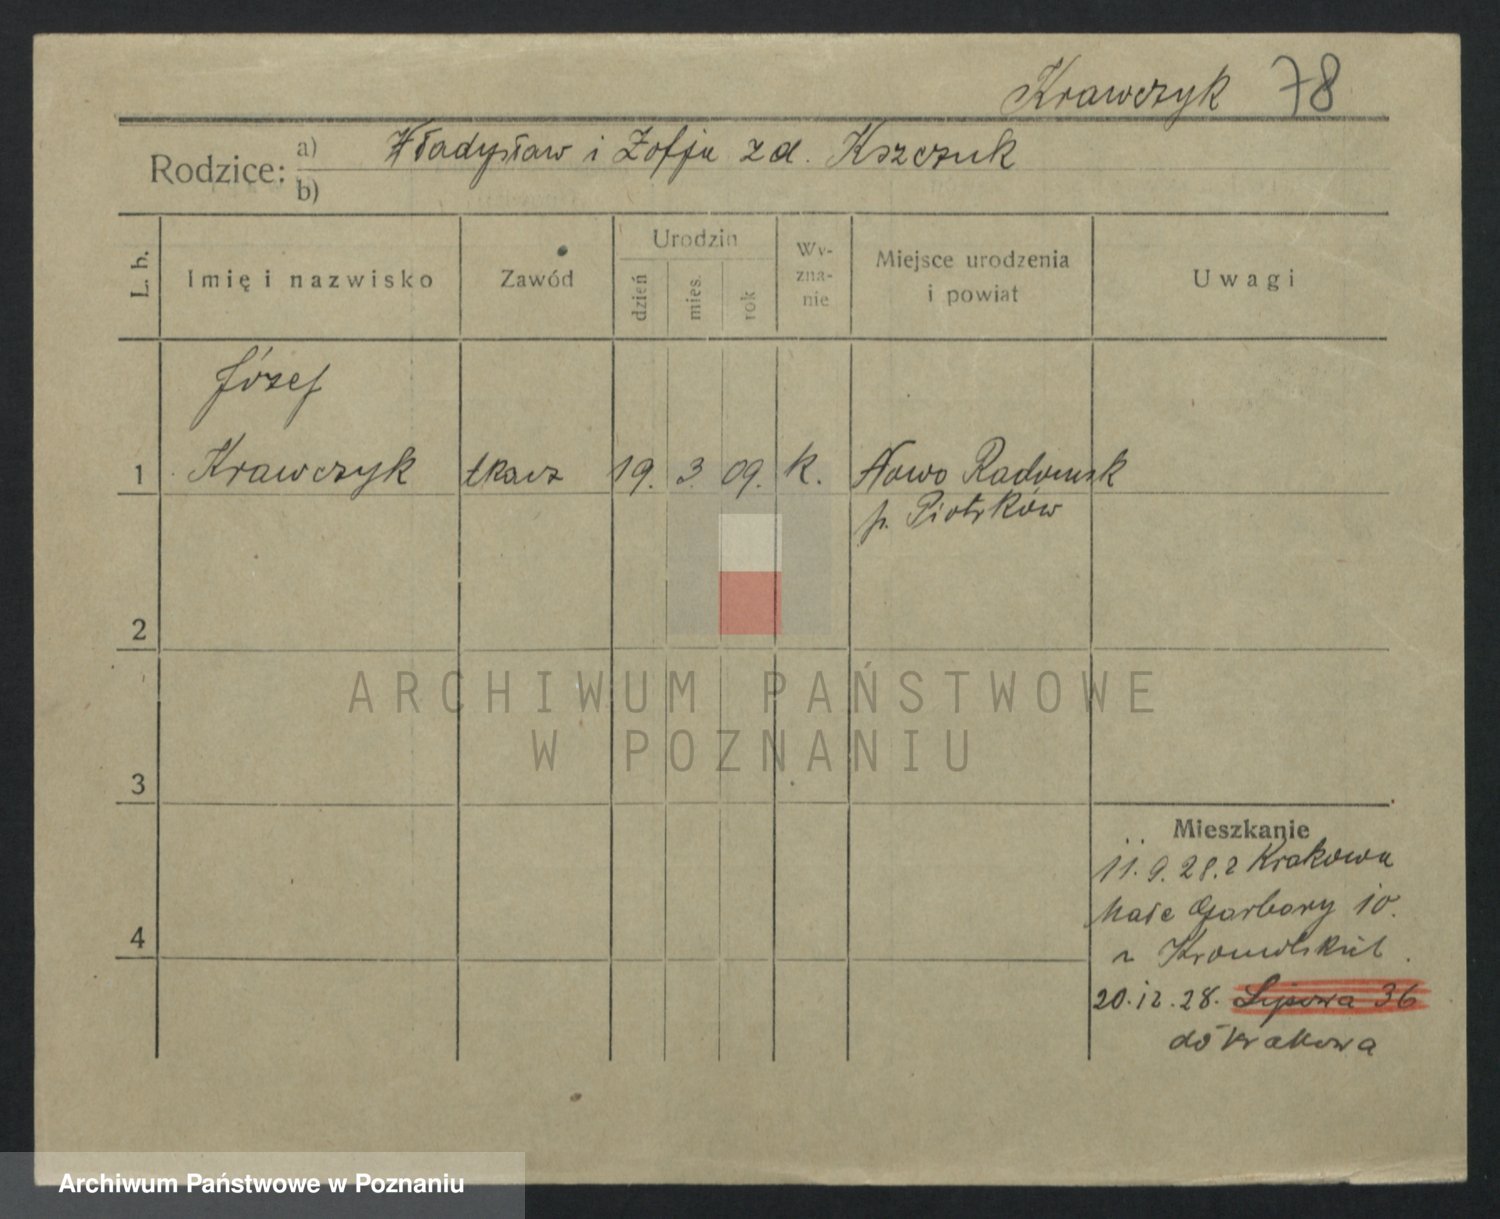 Krawczyk 78
Rodzice: a) Władysław i Zofja zd. Kszczuk
b)
L. b. Imię i nazwisko Zawód Urodzin dzień mies. rok Wy-zna-nie Miejsce urodzenia i powiat Uwagi
Józef
1 Krawczyk tkacz 19. 3. 09. k. Nowo Radomsk
p. Piotrków
2
ARCHIWUM PAŃSTWOWE
W POZNANIU
3
Mieszkanie
11. 9. 28. z Krakowa
Małe Garbary 10.
4
20. 12. 28. Lipowa 36
do Krakowa
Archiwum Państwowe w Poznaniu